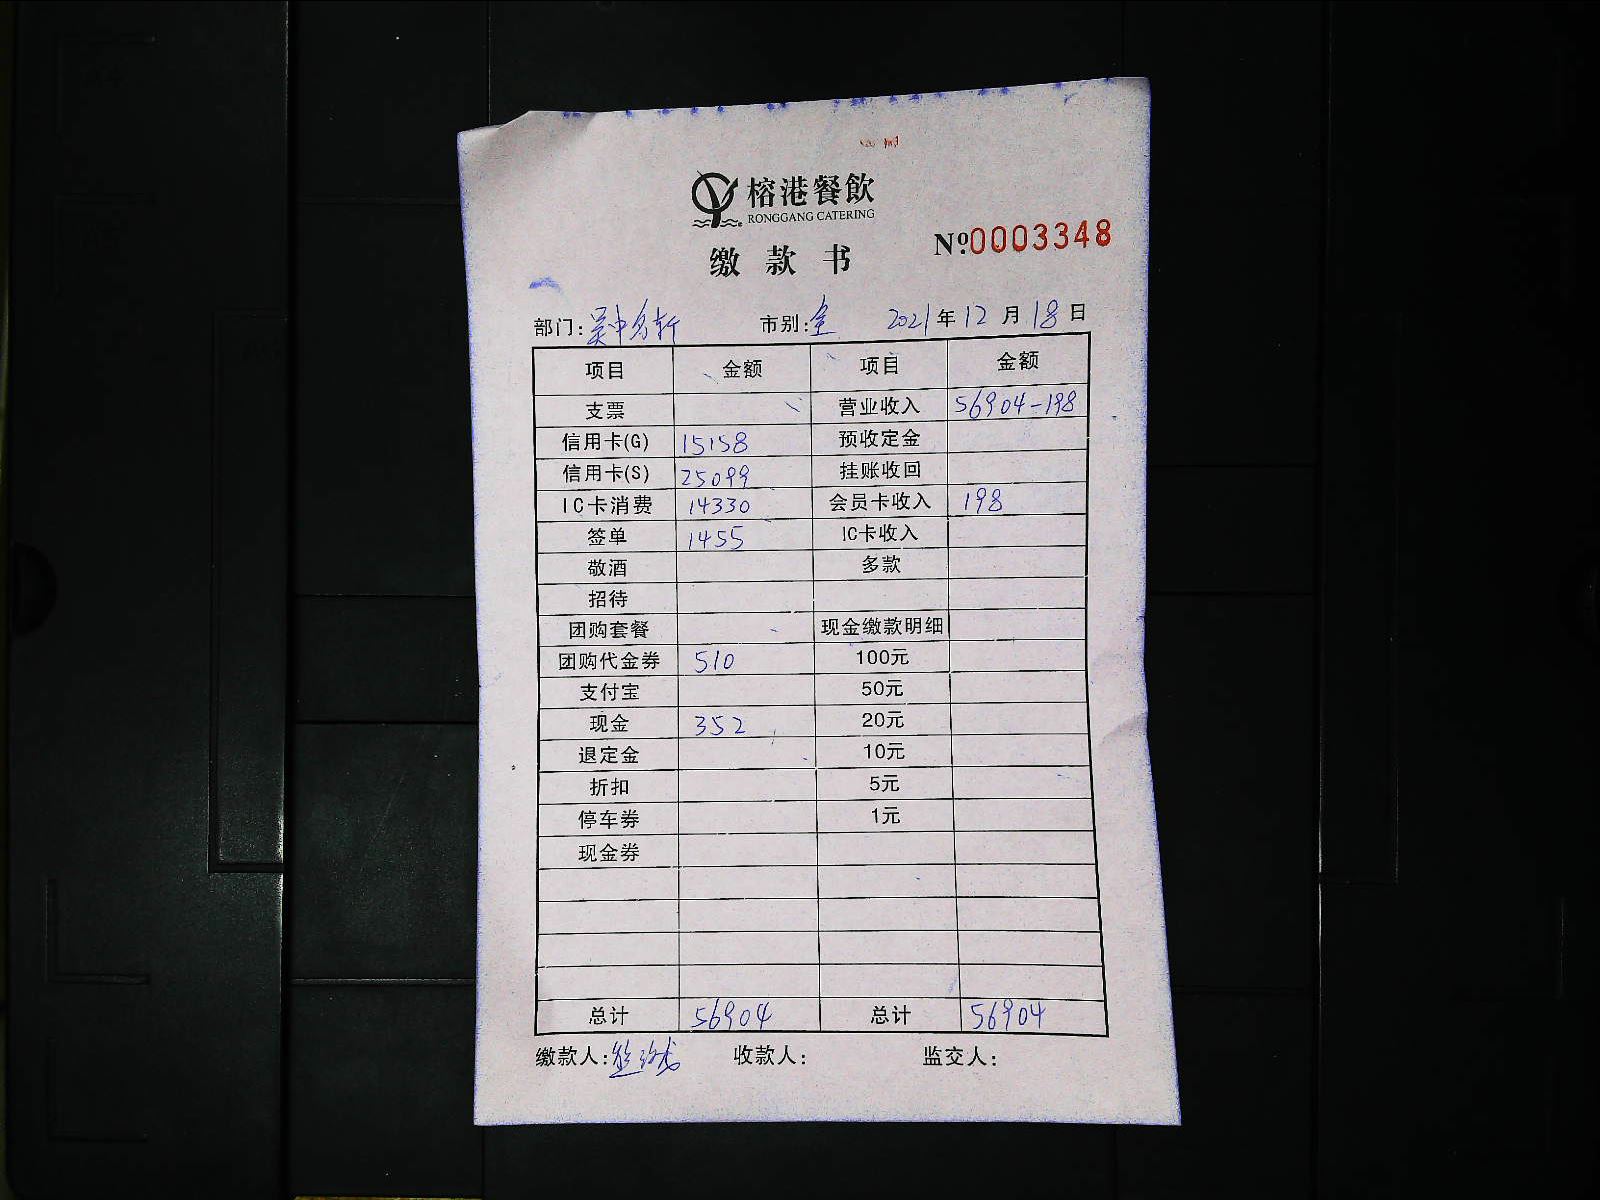 榕港餐飲
RONGGANG CATERING
缴款书
Nº.0003348
部门:吴中名轩 市别:全 2021年12月18日
项目 金额 项目 金额
支票 营业收入 56904-198
信用卡(G) 15158 预收定金
信用卡(S) 25099 挂账收回
IC卡消费 14330 会员卡收入 198
签单 1455 IC卡收入
敬酒 多款
招待
团购套餐 现金缴款明细
团购代金券 510 100元
支付宝 50元
现金 352 20元
退定金 10元
折扣 5元
停车券 1元
现金券
总计 56904 总计 56904
缴款人: 收款人: 监交人: